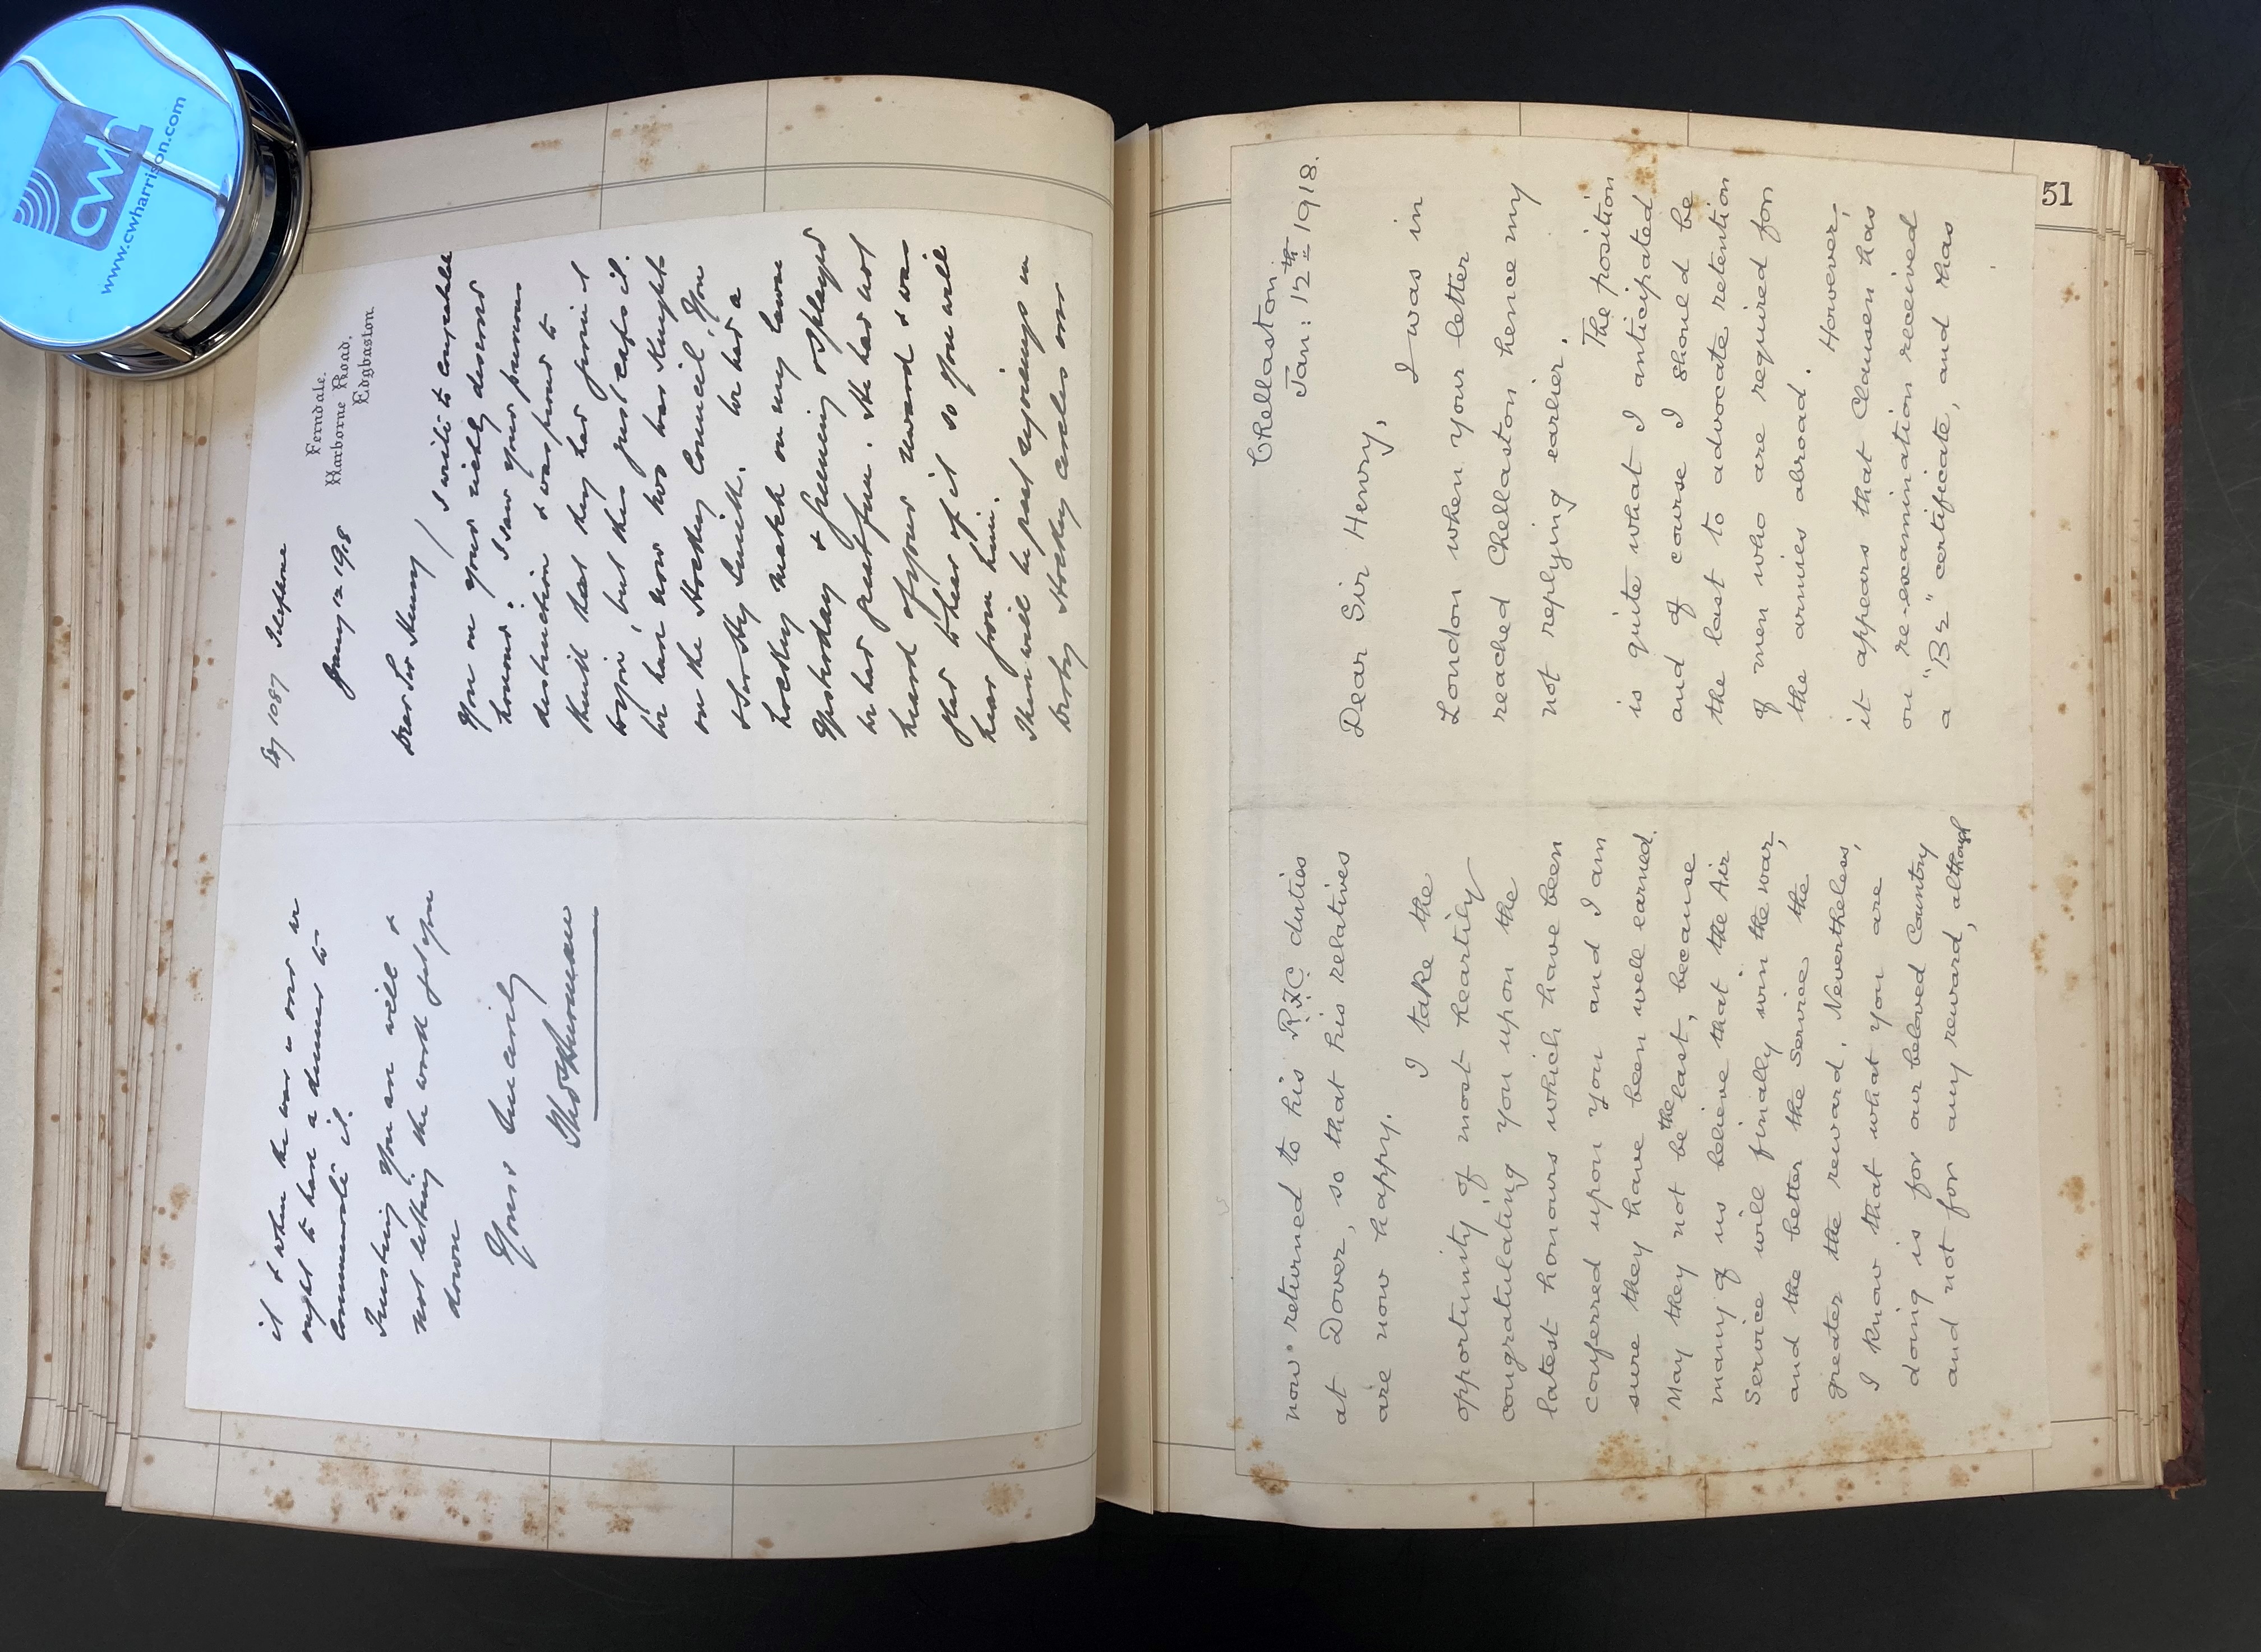 cwh
www.cwharrison.com
Edg 1087 Telephone
Ferndale.
Harborne Road,
Edgbaston
Jany 12 1918
Dear Sir Henry / I write to congratulate
you on your richly deserved
honour. I saw your previous
distinction & was proud to
think that they had given it
to you, but this just caps it.
We have now two Knights
on the Hockey Council, You
& Sir Hby Smith. We had a
hockey match on my lawn
yesterday & Fleming &
we had great fun. He had not
heard of your reward & was
glad to hear of it so you will
hear from him.
There will be great rejoicings in
Derby Hockey circles over
it & when the war is over we
ought to have a dinner to
commemorate it.
Trusting you are well &
not letting the work get you
down
Yours Sincerely
51
Chellaston.
Jan: 12th 1918.
Dear Sir Henry,
I was in
London when your letter
reached Chellaston hence my
not replying earlier.
The position
is quite what I anticipated
and of course I should be
the last to advocate retention
of men who are required for
the armies abroad.
However,
it appears that Clausen has
on re-examination received
a "B2" certificate, and has
now returned to his R.F.C. duties
at Dover, so that his relatives
are now happy.
I take the
opportunity, of most heartily
congratulating you upon the
latest honours which have been
conferred upon you and I am
sure they have been well earned.
May they not be the last, because
many of us believe that the Air
Service will finally win the war,
and the better the Service the
greater the reward. Nevertheless,
I know that what you are
doing is for our beloved Country
and not for any reward, although